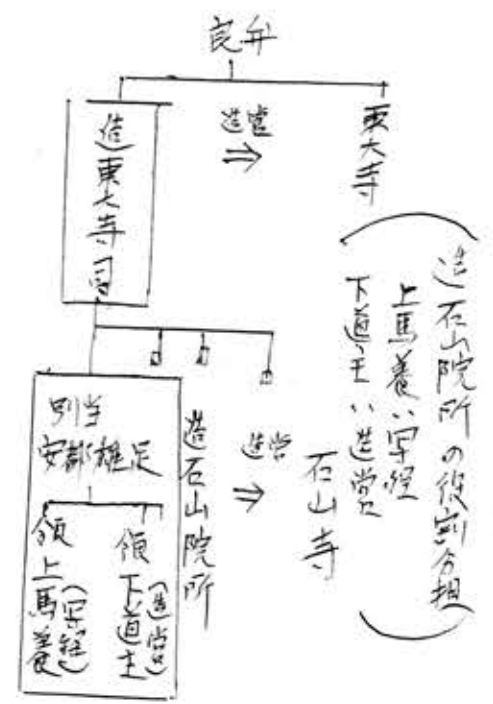 良弁
東大寺
造営
⇒
造東大寺司
造石山院所の役割分担
上馬養ハ写経
下道主ハ造営
石山寺
造営
⇒
造石山院所
別当
安都雄足
領下道主(造営)
領上馬養(写経)